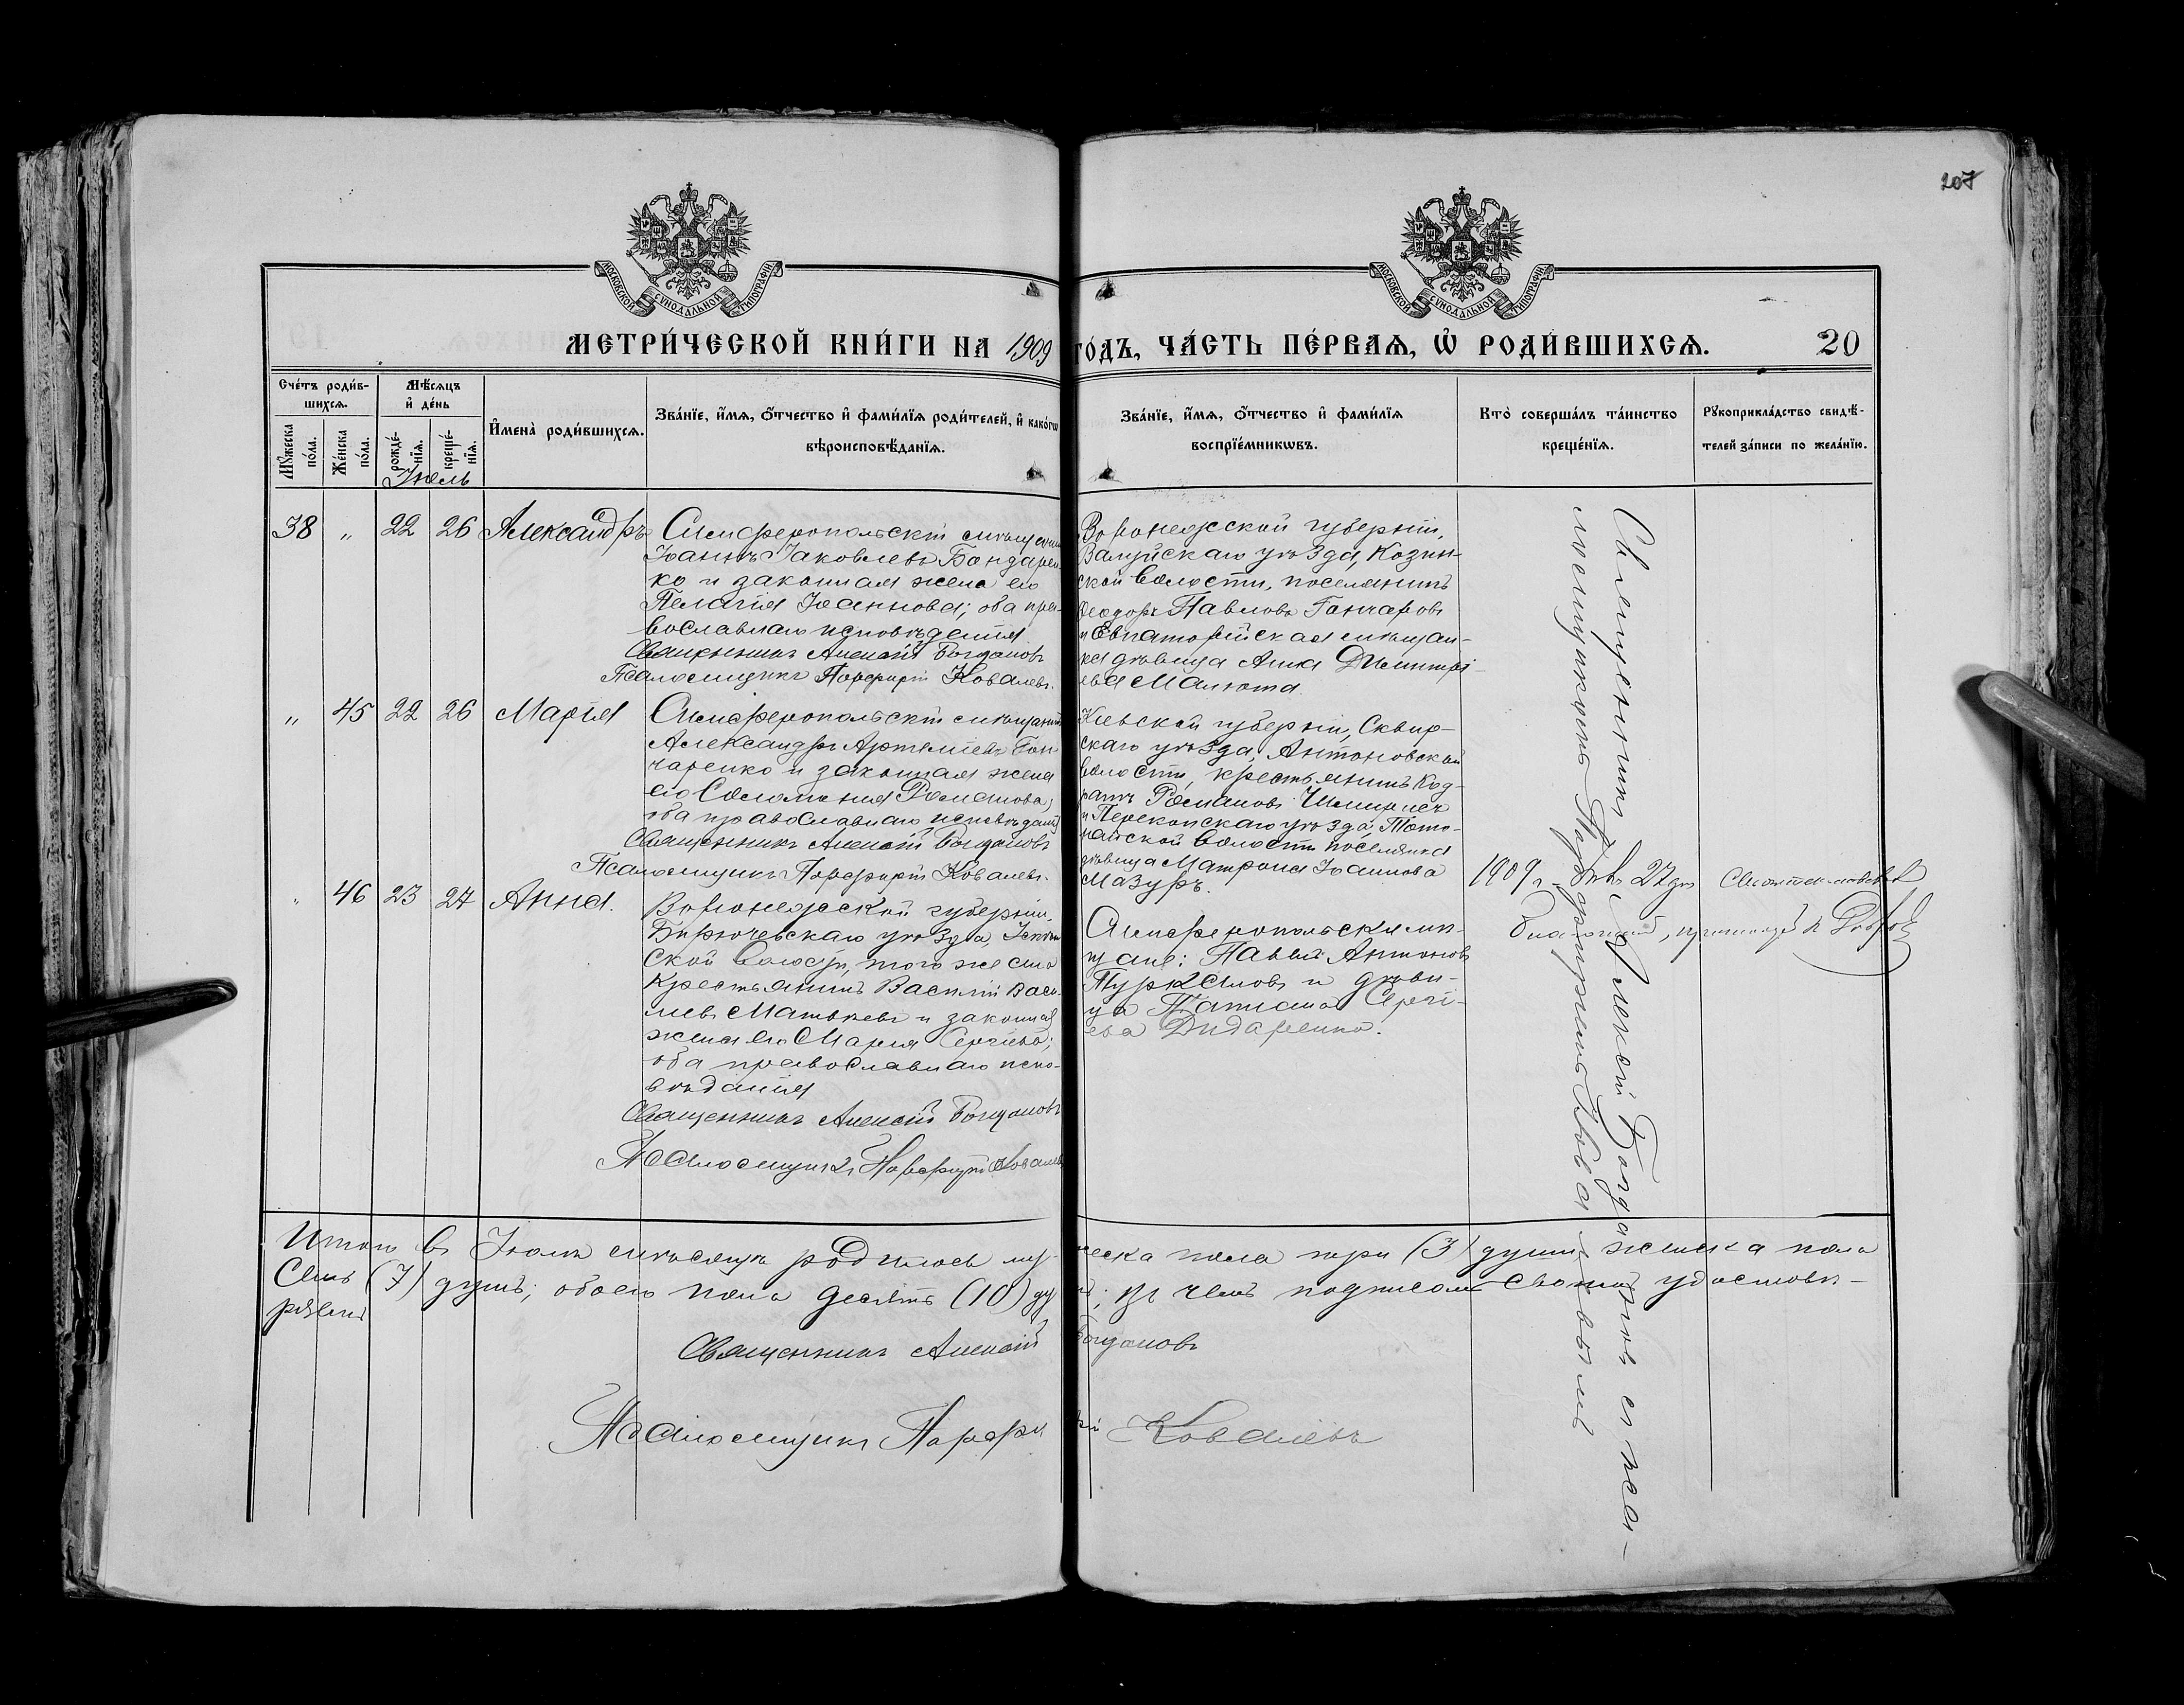 207
МОСКОВСКОЙ СѴНОДАЛЬНОЙ ТИПОГРАФІИ
МОСКОВСКОЙ СѴНОДАЛЬНОЙ ТИПОГРАФІИ
МЕТРИ́ЧЕСКОЙ КНИ́ГИ НА 1909 ГОДЪ, ЧА́СТЬ ПЕ́РВАѦ, Ѡ҆ РОДИ́ВШИХСѦ. 20
Сче́тъ роди́в-
шихсѧ.
Мꙋ́жеска по́ла.
Же́нска по́ла.
Мѣ́сѧцъ
и҆ де́нь
рожде́-
нїѧ.
креще́-
нїѧ.
Июль
И҆мена̀ роди́вшихсѧ.
Зва́нїе, и҆́мѧ, ѻ҆́тчество и҆ фами́лїѧ роди́телей, и҆ како́гѡ
вѣроисповѣ́данїѧ.
Зва́нїе, и҆́мѧ, ѻ҆́тчество и҆ фами́лїѧ
воспрїе́мникѡвъ.
Кто̀ соверша́лъ та́инство
креще́нїѧ.
Рꙋкоприкла́дство свидѣ́-
телей за́писи по жела́нїю.
38 „ 22 26 Александръ
Симферопольскій мѣщанинъ
Іоаннъ Іаковлевъ Бондарен-
ко и законная жена его
Пелагія Іоаннова; оба пра-
вославнаго исповѣданія
Священникъ Алексій Богдановъ
Псаломщикъ Порфирій Ковалевъ.
Воронежской губерніи,
Валуйскаго уѣзда, Козин-
ской волости, поселянинъ
Феодоръ Павловъ Гончаровъ
и Евпаторійская мѣщан-
ка дѣвица Анна Димитрі-
ева Малюта.
„ 45 22 26 Марія
Симферопольскій мѣщанинъ
Александръ Артеміевъ Гон-
чаренко и законная жена
его Соломонія Романова;
оба православнаго исповѣданія
Священникъ Алексій Богдановъ
Псаломщикъ Порфирій Ковалевъ.
Кіевской губерніи, Сквир-
скаго уѣзда, Антоновской
волости, крестьянинъ Код-
ратъ Романовъ
и Перекопскаго уѣзда,
волости поселянка
дѣвица Матрона Іоаннова
Мазуръ.
„ 46 23 27 Анна.
Воронежской губерніи,
Бирюченскаго уѣзда,
ской волости, того же села
крестьянинъ Василій Васи-
левъ Матвѣевъ и законная
жена его Марія Сергіева;
оба православнаго испо-
вѣданія
Священникъ Алексій Богдановъ
Псаломщикъ Порфирій Ковалевъ
Симферопольскіе мѣ-
щане: Павелъ Антоновъ
и дѣви-
ца Татіана Сергі-
ева Дидаренко.
Священникъ Алексій Богдановъ съ пса-
ломщикомъ Порфиріемъ Ковалевымъ
1909 г. 27 дня
Итого въ Іюлѣ мѣсяцѣ родилось му-
жеска пола три (3) души женска пола
семь (7) душъ; обоего пола десять (10) душъ; въ чемъ подписомъ своимъ удостовѣ-
ряемъ
Священникъ Алексій Богдановъ
Псаломщикъ Порфирій Ковалевъ